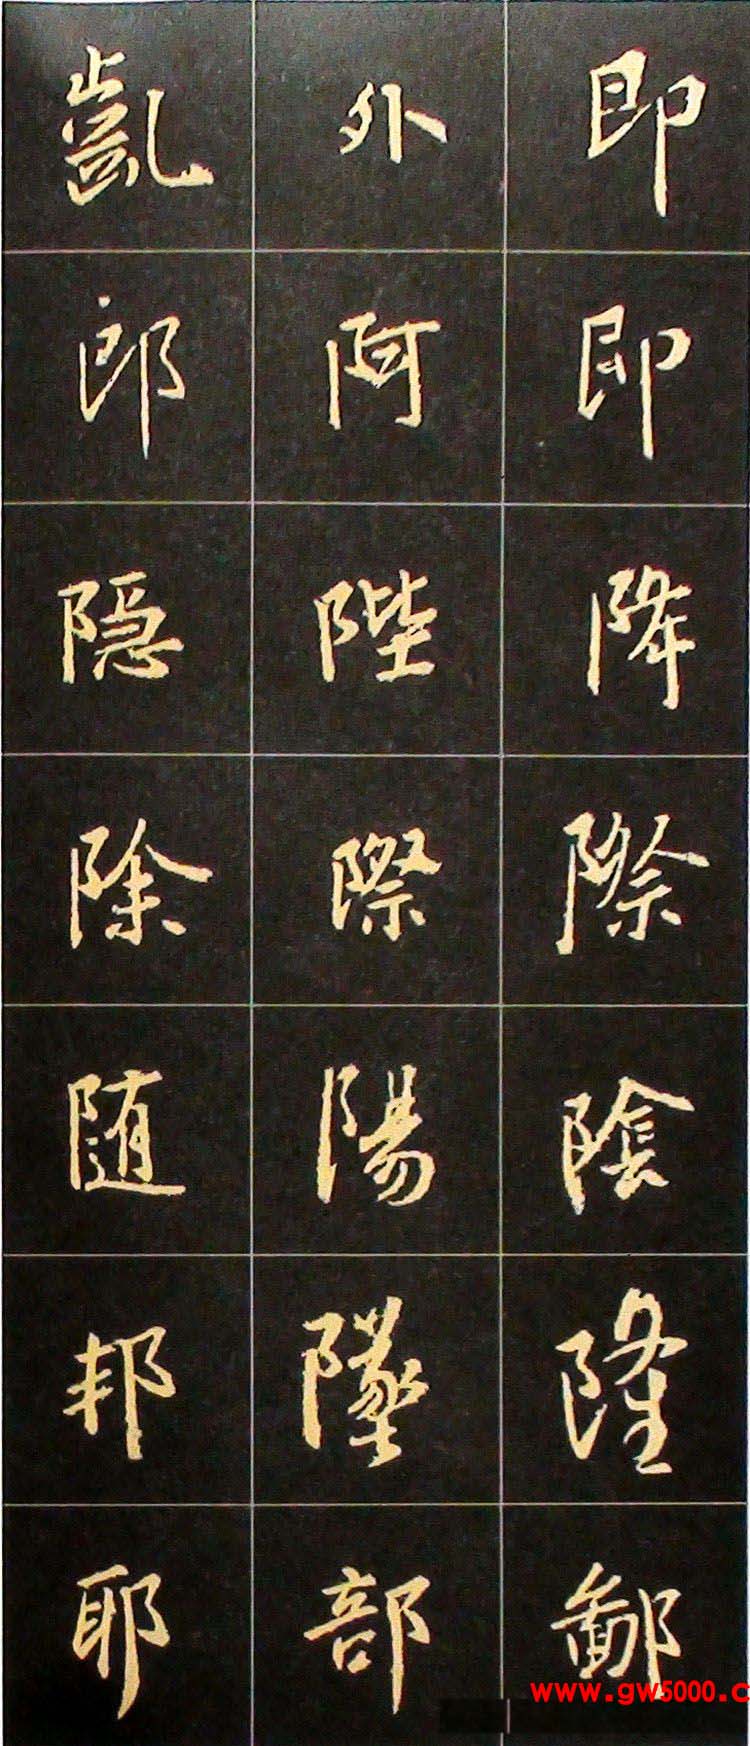 即即降際陰隆鄙
外阿陛際陽墜部
凱郎隐除随邦耶
www.gw5000.c